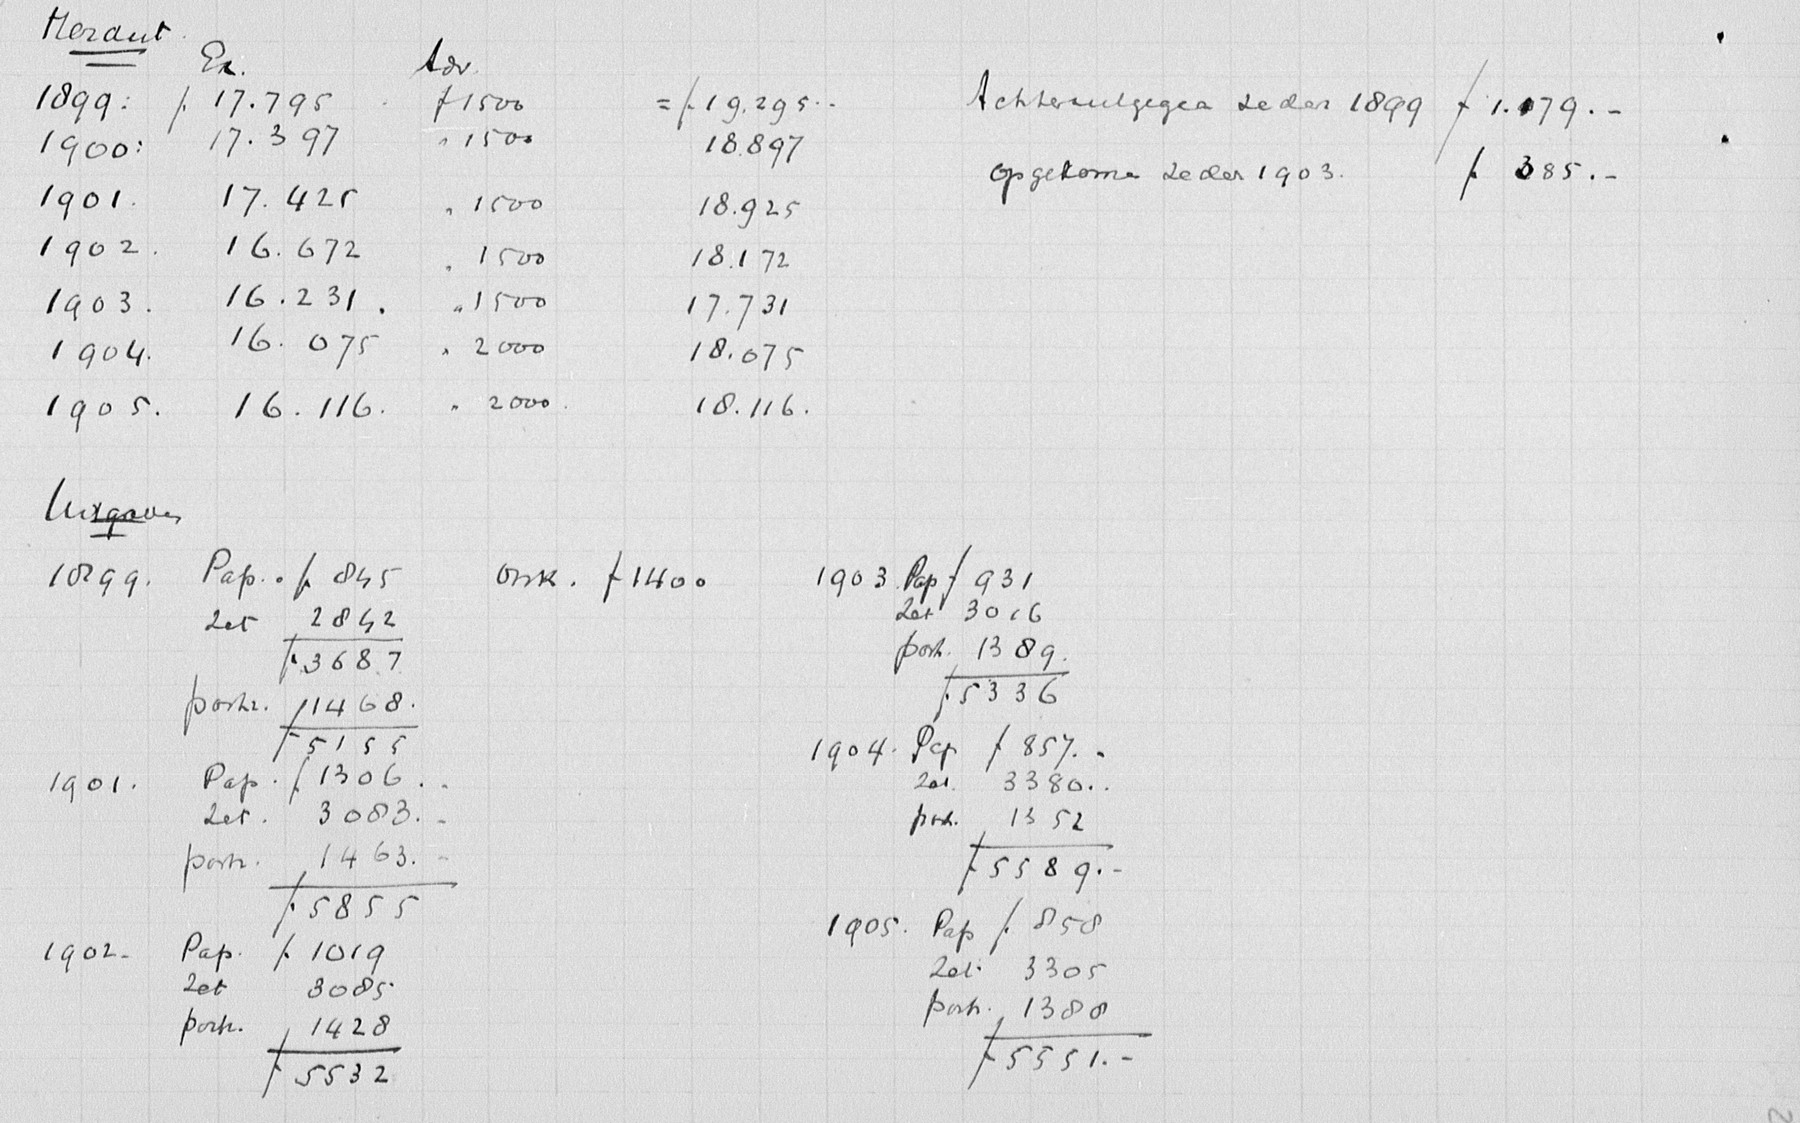 Heraut.
Ex. Adv.
1899: f 17.795 f 1500 = f 19.295.- Achteruitgegaan zeder 1899 f 1.179.-
1900: 17.397 " 1500 18.897
opgekomen zeder 1903. f 385.-
1901. 17.425 " 1500 18.925
1902. 16.672 " 1500 18.172
1903. 16.231. " 1500 17.731
1904. 16.075 " 2000 18.075
1905. 16.116. " 2000. 18.116.
Uitgaven
1899. Pap. f 845 f 1400
Zet 2842
f 3687
porti. 1468.
f 5155
1901. Pap. f 1306.-
Zet. 3083.-
porti. 1463.-
f 5855
1902.- Pap. f 1019
Zet 3085
porti. 1428
f 5532
1903 Pap f 931
Zet 3016
porti. 1389.
f 5336
1904. Pap f 857.-
Zet. 3380.-
porti. 1352
f 5589.-
1905. Pap f 858
Zet. 3305
porti. 1388
f 5551.-